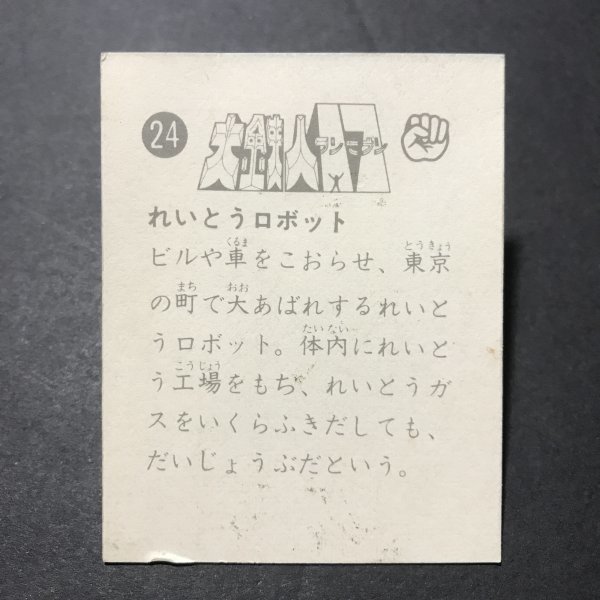 24
大鉄人17
ワンセブン
れいとうロボット
ビルや車をこおらせ、東京
の町で大あばれするれいと
うロボット。体内にれいと
う工場をもち、れいとうガ
スをいくらふきだしても、
だいじょうぶだという。